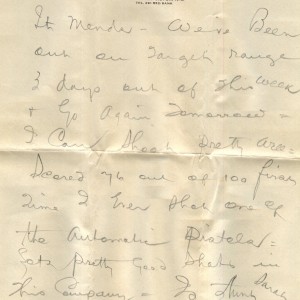 TEL. 291 RED BANK
St Mender - We've Been
out on Target range
3 days out of this WEEK
& Go Again Tomorrow =
I Can Shoot Pretty Area=
Scored 76 out of 100 firs
Time I Ever shot one of
the Automatic Pistols =
Lots Pretty Good Shots in
This Company =